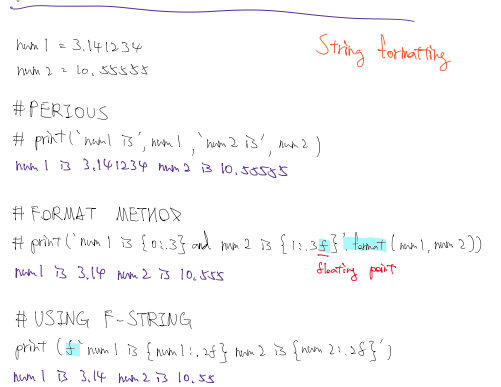 String formatting
num1 = 3.141234
num2 = 10.55555
# PERIOUS
# print('num1 is', num1, 'num2 is', num2)
num1 is 3.141234 num2 is 10.55555
# FORMAT METHOD
# print('num1 is {0:.3} and num2 is {1:.3f}'.format(num1, num2))
num1 is 3.14 num2 is 10.555
floating point
# USING F-STRING
print (f'num1 is {num1:.2f} num2 is {num2:.2f}')
num1 is 3.14 num2 is 10.55